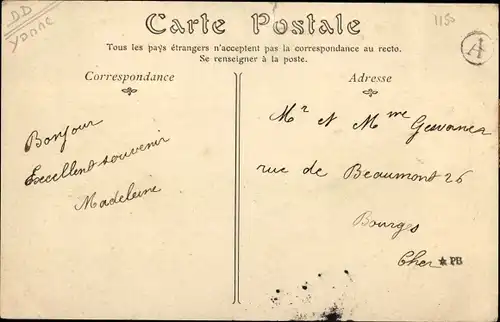 DD
Yonne
1150
A
Carte Postale
Tous les pays étrangers n'acceptent pas la correspondance au recto.
Se renseigner à la poste.
Correspondance
Bonjour
Excellent souvenir
Madeleine
Adresse
Mr et Mme
rue de Beaumont 26
Bourges
Cher
PB